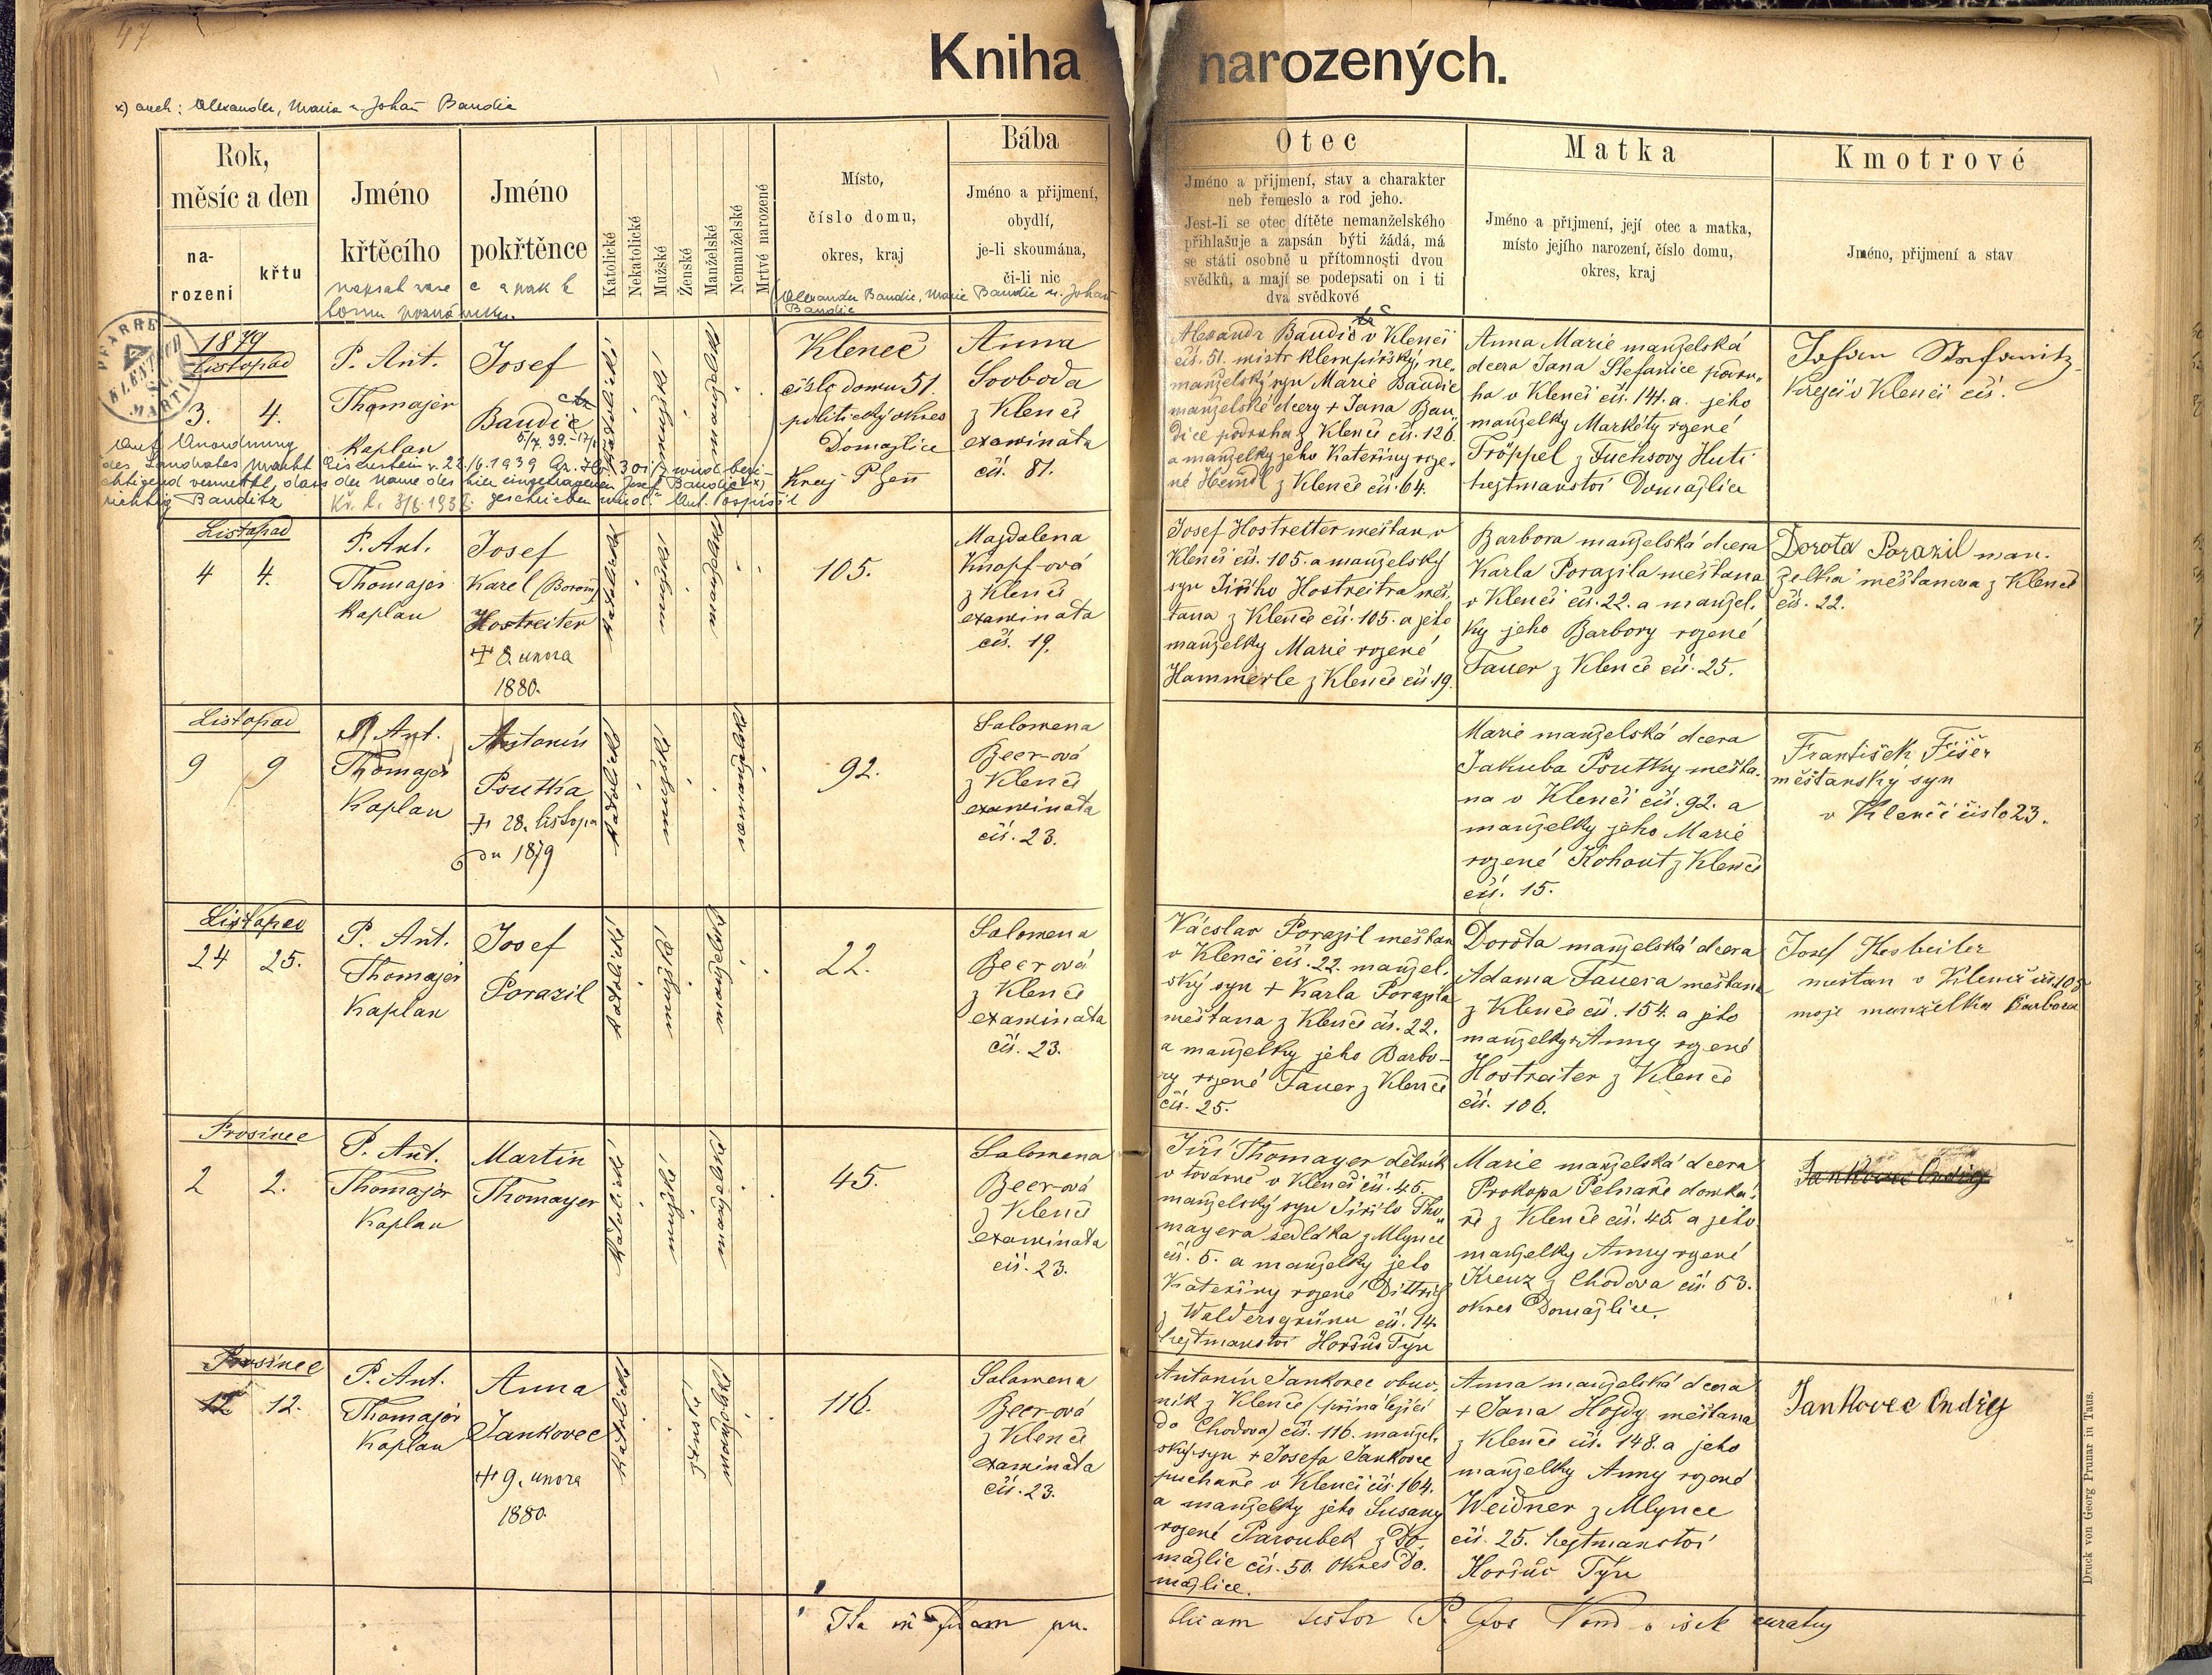 47
Kniha narozených.
x) auch: Alexander, Maria u. Johann Baudic
Rok,
měsíc a den
na-
rození
křtu
Jméno
křtěcího
Jméno
pokřtěnce
Katolické
Nekatolické
Mužské
Ženské
Manželské
Nemanželské
Mrtvé narozené
Místo,
číslo domu,
okres, kraj
Bába
Jméno a přijmení,
obydlí,
je-li skoumána,
či-li nic
Otec
Jméno a přijmení, stav a charakter
neb řemeslo a rod jeho.
Jest-li se otec dítěte nemanželského
přihlašuje a zapsán býti žádá, má
se státi osobně u přítomnosti dvou
svědků, a mají se podepsati on i ti
dva svědkové
Matka
Jméno a příjmení, její otec a matka,
místo jejího narození, číslo domu,
okres, kraj
Kmotrové
Jméno, přijmení a stav
(Alexander Baudic, Marie Baudic u. Johann
Baudic
PFARRE KLENTSCH ST. MARTIN
1879
Listopad
3. 4.
P. Ant.
Thomajer
Kaplan
Josef
Baudic
tz
5/7. 39.
katolické
mužské
manželské
Kleneč
číslo domu 51.
politický okres
Domažlice
Kraj Plzeň
Anna
Svoboda
z Klenče
examinata
čís. 81.
Alexandr Baudic v Klenči
čís. 51. mistr klempířský, ne-
manželský syn Marie Baudic
manželské dcery + Jana Bau-
dice podruha z Klenče čís. 126.
a manželky jeho Kateřiny roze-
né Heindl z Klenče čís. 64.
Anna Marie manželská
dcera Jana Štefanice podru-
ha v Klenči čís. 141. a jeho
manželky Markéty rozené
Tröppel z Fuchsovy Huti
hejtmanství Domažlice
Johann Stefanitz
Krejčí v Klenči čís.
Auf Anordnung
des Landrates Markt Eisenstein v. 22./6. 1939 wird beri-
chtigend vermerkt, dass der Name des hier eingetragenen Josef Baudic x)
richtig Bauditz geschrieben wird. Ant. Pospíšil
Listopad
4 4.
P. Ant.
Thomajer
Kaplan
Josef
Karel (Borom)
Hostreiter
+ 8. února
1880.
katolické
mužské
manželské
105.
Magdalena
Knopf-ová
z Klenče
examinata
čís. 19.
Josef Hostreiter měšťan v
Klenči čís. 105. a manželský
syn Jiřího Hostreitra měš-
ťana z Klenče čís. 105. a jeho
manželky Marie rozené
Hammerle z Klenče čís. 19.
Barbora manželská dcera
Karla Porazila měšťana
v Klenči čís. 22. a manžel-
ky jeho Barbory rozené
Tauer z Klenče čís. 25.
Dorota Porazil man-
želka měšťanova z Klenče
čís. 22.
Listopad
9 9
P. Ant.
Thomajer
Kaplan
Antonín
Psutka
+ 28. listopa
du 1879
katolické
mužské
nemanželské
92.
Salomena
Beer-ová
z Klenče
examinata
čís. 23.
Marie manželská dcera
Jakuba Psutky měšťa-
na v Klenči čís. 92. a
manželky jeho Marie
rozené Kohout z Klenče
čís. 15.
František Fišer
měšťanský syn
v Klenči čislo 23.
Listopad
24 25.
P. Ant.
Thomajer
Kaplan
Josef
Porazil
katolické
mužské
manželské
22.
Salomena
Beerová
z Klenče
examinata
čís. 23.
Václav Porazil měšťan
v Klenči čís. 22. manžel-
ský syn + Karla Porazila
měšťana z Klenče čís. 22.
a manželky jeho Barbo-
ry rozené Tauer z Klenče
čís. 25.
Dorota manželská dcera
Adama Tauera měšťana
z Klenče čís. 154. a jeho
manželky Anny rozené
Hostreiter z Klenče
čís. 106.
Josef Hostreiter
mestan v Klenči čis 105
moje manželka Barbora
Prosinec
2 2.
P. Ant.
Thomajer
Kaplan
Martin
Thomayer
katolické
mužské
manželské
45.
Salomena
Beer-ová
z Klenče
examinata
čís. 23.
Jiří Thomayer dělník
v továrně v Klenči čís. 45.
manželský syn Jiřího Tho-
mayera sedláka z Mlýnce
čís. 5. a manželky jeho
Kateřiny rozené Dittrich
z Waldersgrünu čís. 14.
hejtmanství Horšův Týn
Marie manželská dcera
Prokopa Pelnaře domká-
ře z Klenče čís. 45. a jeho
manželky Anny rozené
Kreuz z Chodova čís. 53.
okres Domažlice.
Jankovec Ondřej
Prosinec
12 12.
P. Ant.
Thomajer
Kaplan
Anna
Jankovec
+ 9. února
1880.
katolické
ženské
manželské
116.
Salomena
Beer-ová
z Klenče
examinata
čís. 23.
Antonín Jankovec obuv-
ník z Klenče (přináležející
do Chodova) čís. 116. manžel-
ský syn + Josefa Jankovce
puchaře v Klenči čís. 164.
a manželky jeho Susany
rozené Paroubek z Do-
mažlic čís. 50. okres Do-
mažlice.
Anna manželská dcera
+ Jana Hojdy měšťana
z Klenče čís. 148. a jeho
manželky Anny rozené
Weidner z Mlýnce
čís. 25. hejtmanství
Horšův Týn
Jankovec Ondřej
testor P. Jos
Druck von Georg Prunar in Taus.